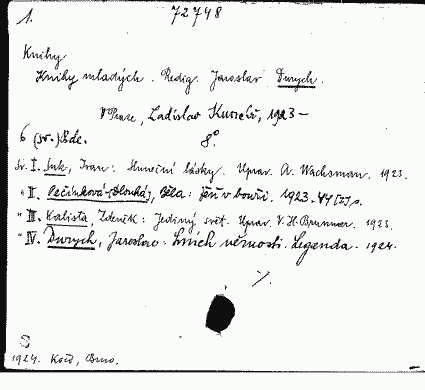 1.
72748
Knihy
Knihy mladých. Redig. Jaroslav Durych.
V Praze, Ladislav Kuncíř, 1923 –
6 (sv.) 8°
sv. I. Suk, Ivan: Sluneční lásky. Uprav. A. Wachsman. 1923.
" II. Pečínková-(Dlouhá), Běla: V bouři. 1923. 44 [2] s.
" III. Kalista, Zdeněk: Jediný svět. Uprav. V. H. Brunner. 1923.
" IV. Durych, Jaroslav: Smích věrnosti. Legenda. 1924.
1924. Kočí, Brno.